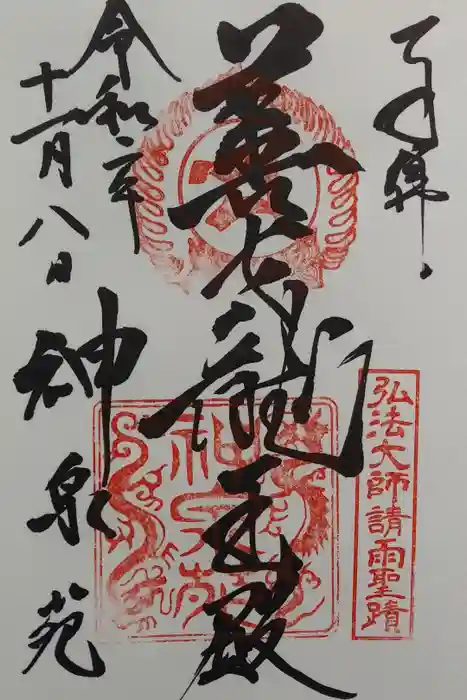 奉拝
弘法大師請雨聖蹟
善女龍王殿
神泉苑
令和二年
十一月八日
神泉苑